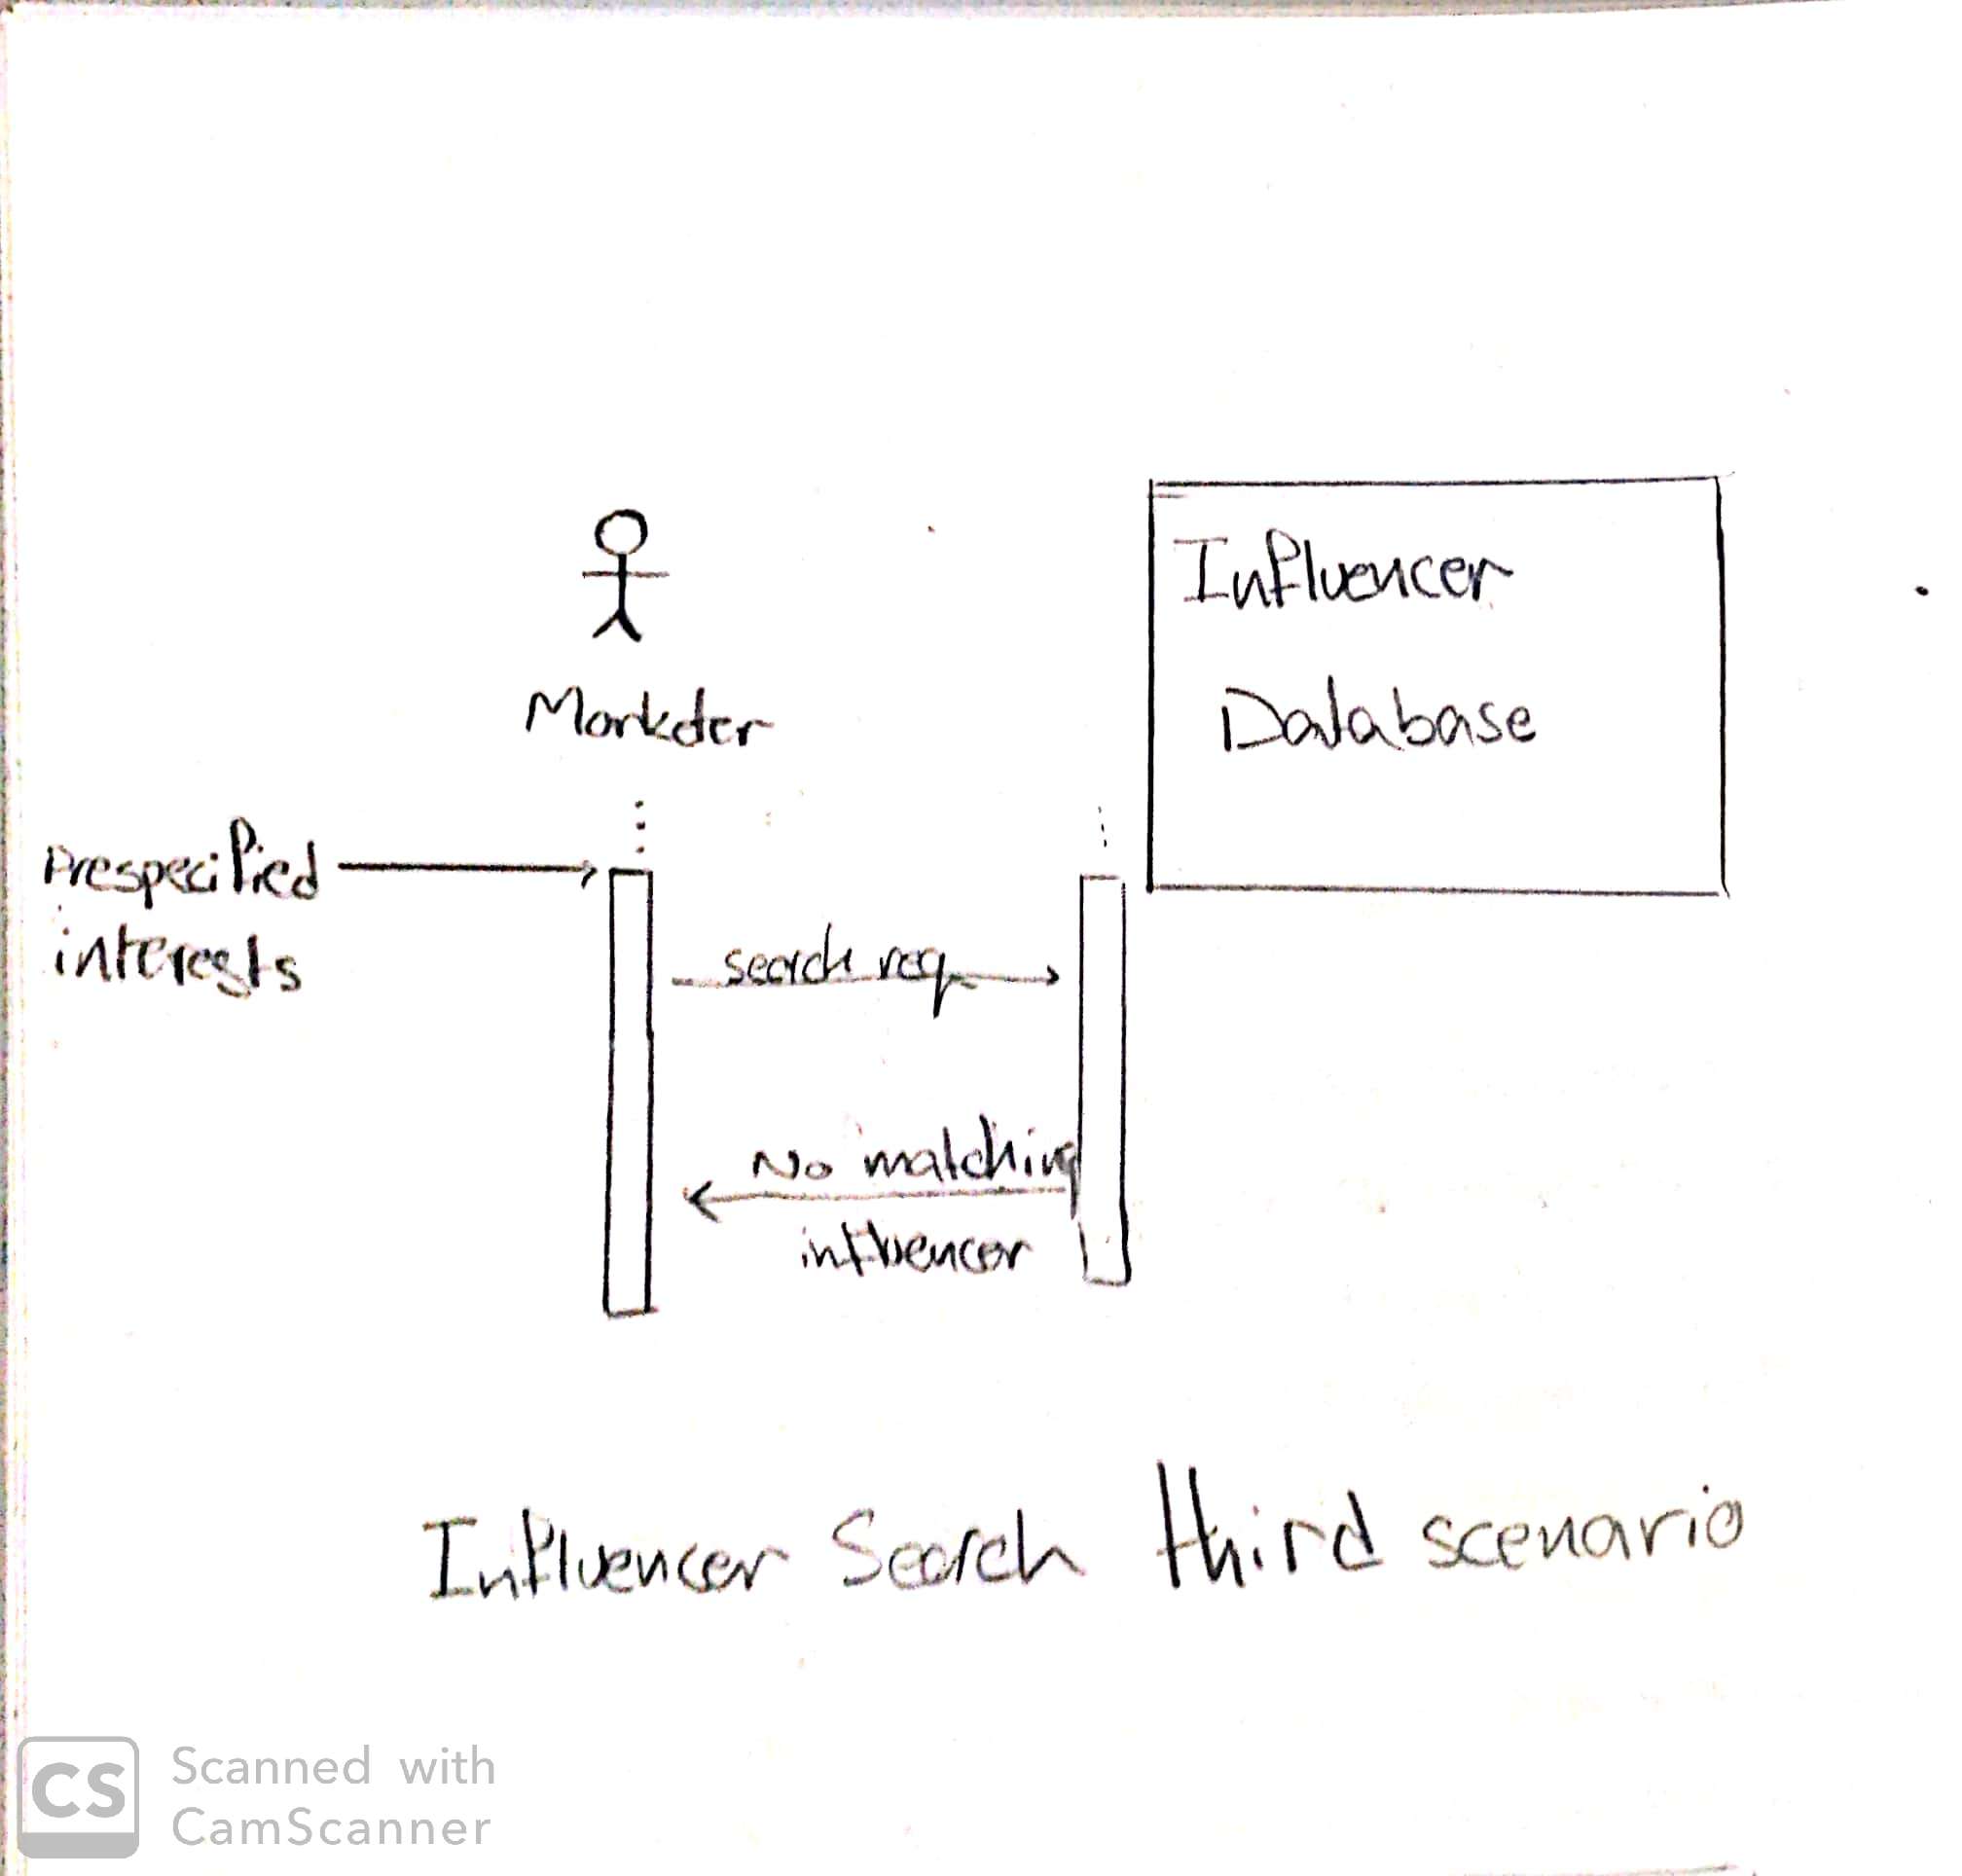 Influencer
Database
Marketer
Prespecified
interests
search req
No matching
influencer
Influencer Search third scenario
CS
Scanned with
CamScanner